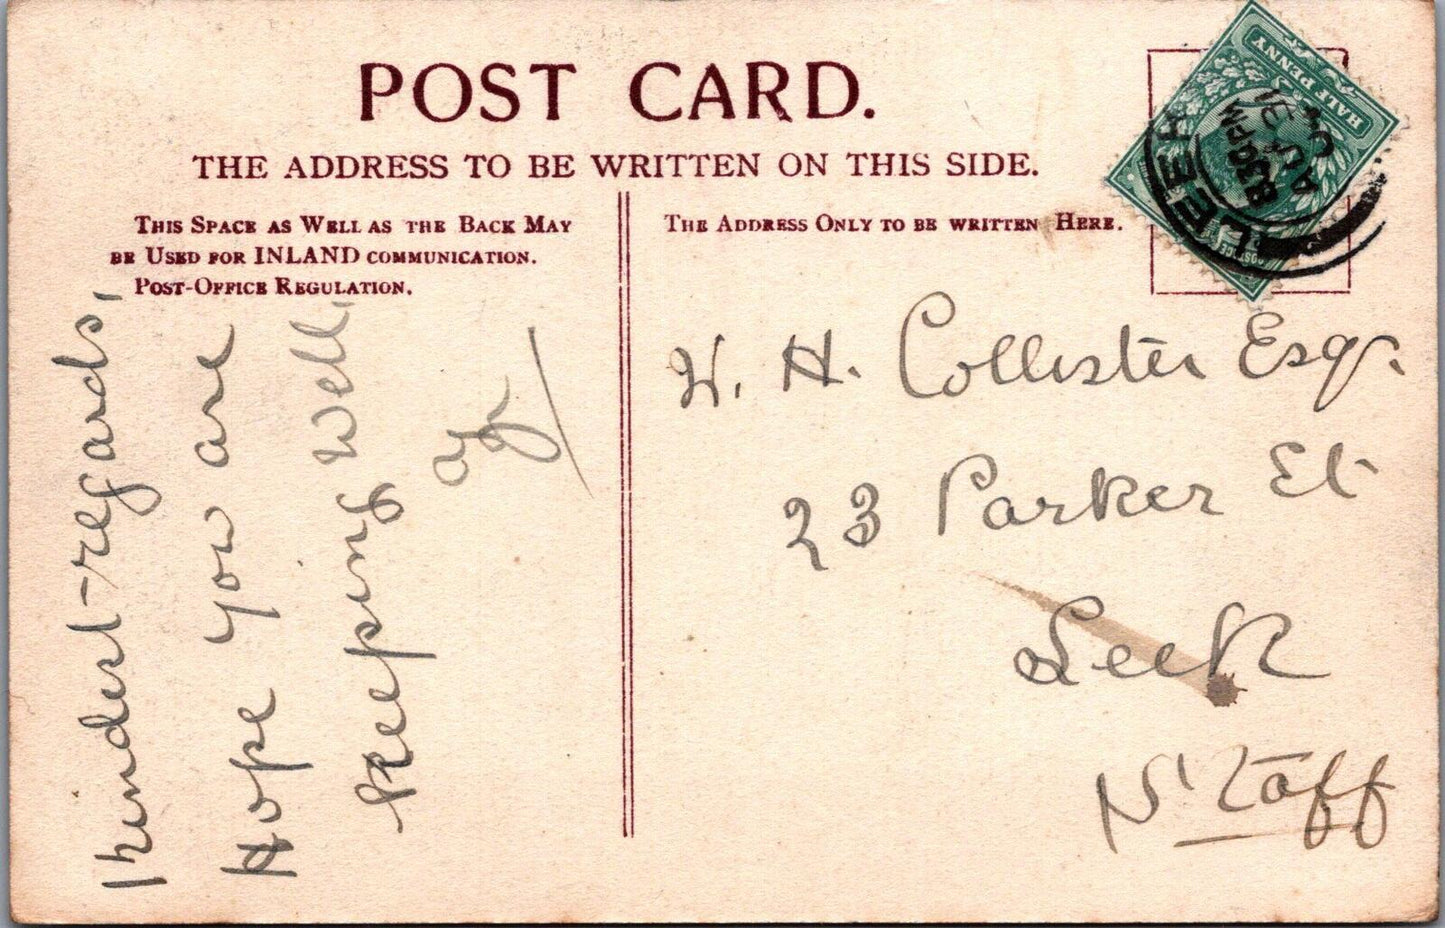 POST CARD.
THE ADDRESS TO BE WRITTEN ON THIS SIDE.
THIS SPACE AS WELL AS THE BACK MAY
BE USED FOR INLAND COMMUNICATION.
POST-OFFICE REGULATION.
THE ADDRESS ONLY TO BE WRITTEN HERE.
HALF PENNY
POSTAGE
LEEK
8.30PM
AU 31
Kindest regards,
Hope you are
keeping well.
W. H. Collister Esqr.
23 Parker St
Leek
N. Staff